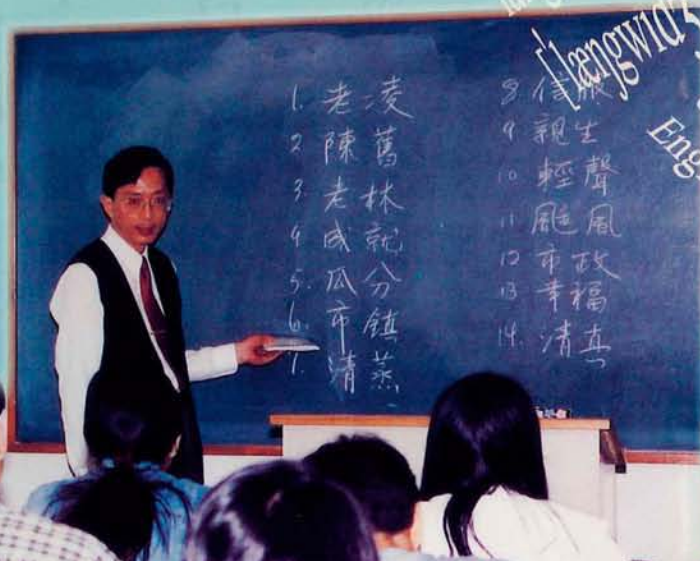 ['læŋgwidʒ
Eng
1. 老凌
2 陳舊
3. 老林
4 成就
5. 瓜分
6. 市鎮
7. 清蒸
8 信服
9 親生
10 輕聲
11 颶風
12 市政
13 幸福
14. 清真